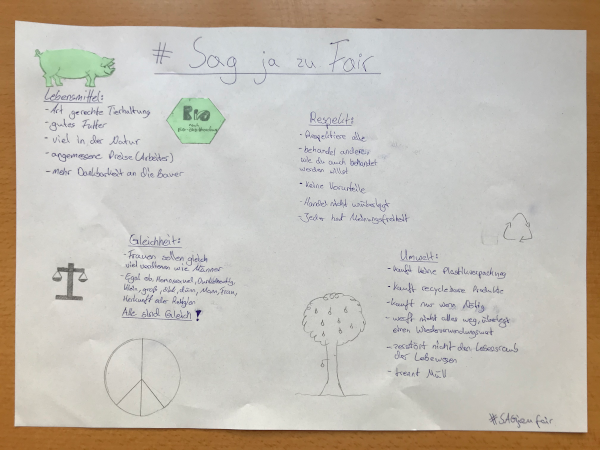 # Sag ja zu Fair
Lebensmittel:
- Art gerechte Tierhaltung
- gutes Futter
- viel in der Natur
- angemessene Preise (Arbeiter)
- mehr Dankbarkeit an die Bauer
Bio
nach
Respekt:
- Respektiere alle
- behandel anderen
wie du auch behandet
werden willst
- keine Vorurteile
- Handel nicht unüberlegt
- Jeder hat Meinungsfreiheit
Gleichheit:
- Frauen sollen gleich
viel verdienen wie Männer
- Egal ob Homosexuel, Dunkelheutig,
klein, groß, dick, dünn, Mann, Frau,
Herkunft oder Religion
Alle sind Gleich!
Umwelt:
- kauft keine Plastikverpackung
- kauft recyclebare Produkte
- kauft nur wenn Nötig
- werft nicht alles weg, überlegt
einen Wiederverwendungswert
- zerstört nicht den Lebensraub
der Lebewesen
- trennt Müll
#SAGjazufair